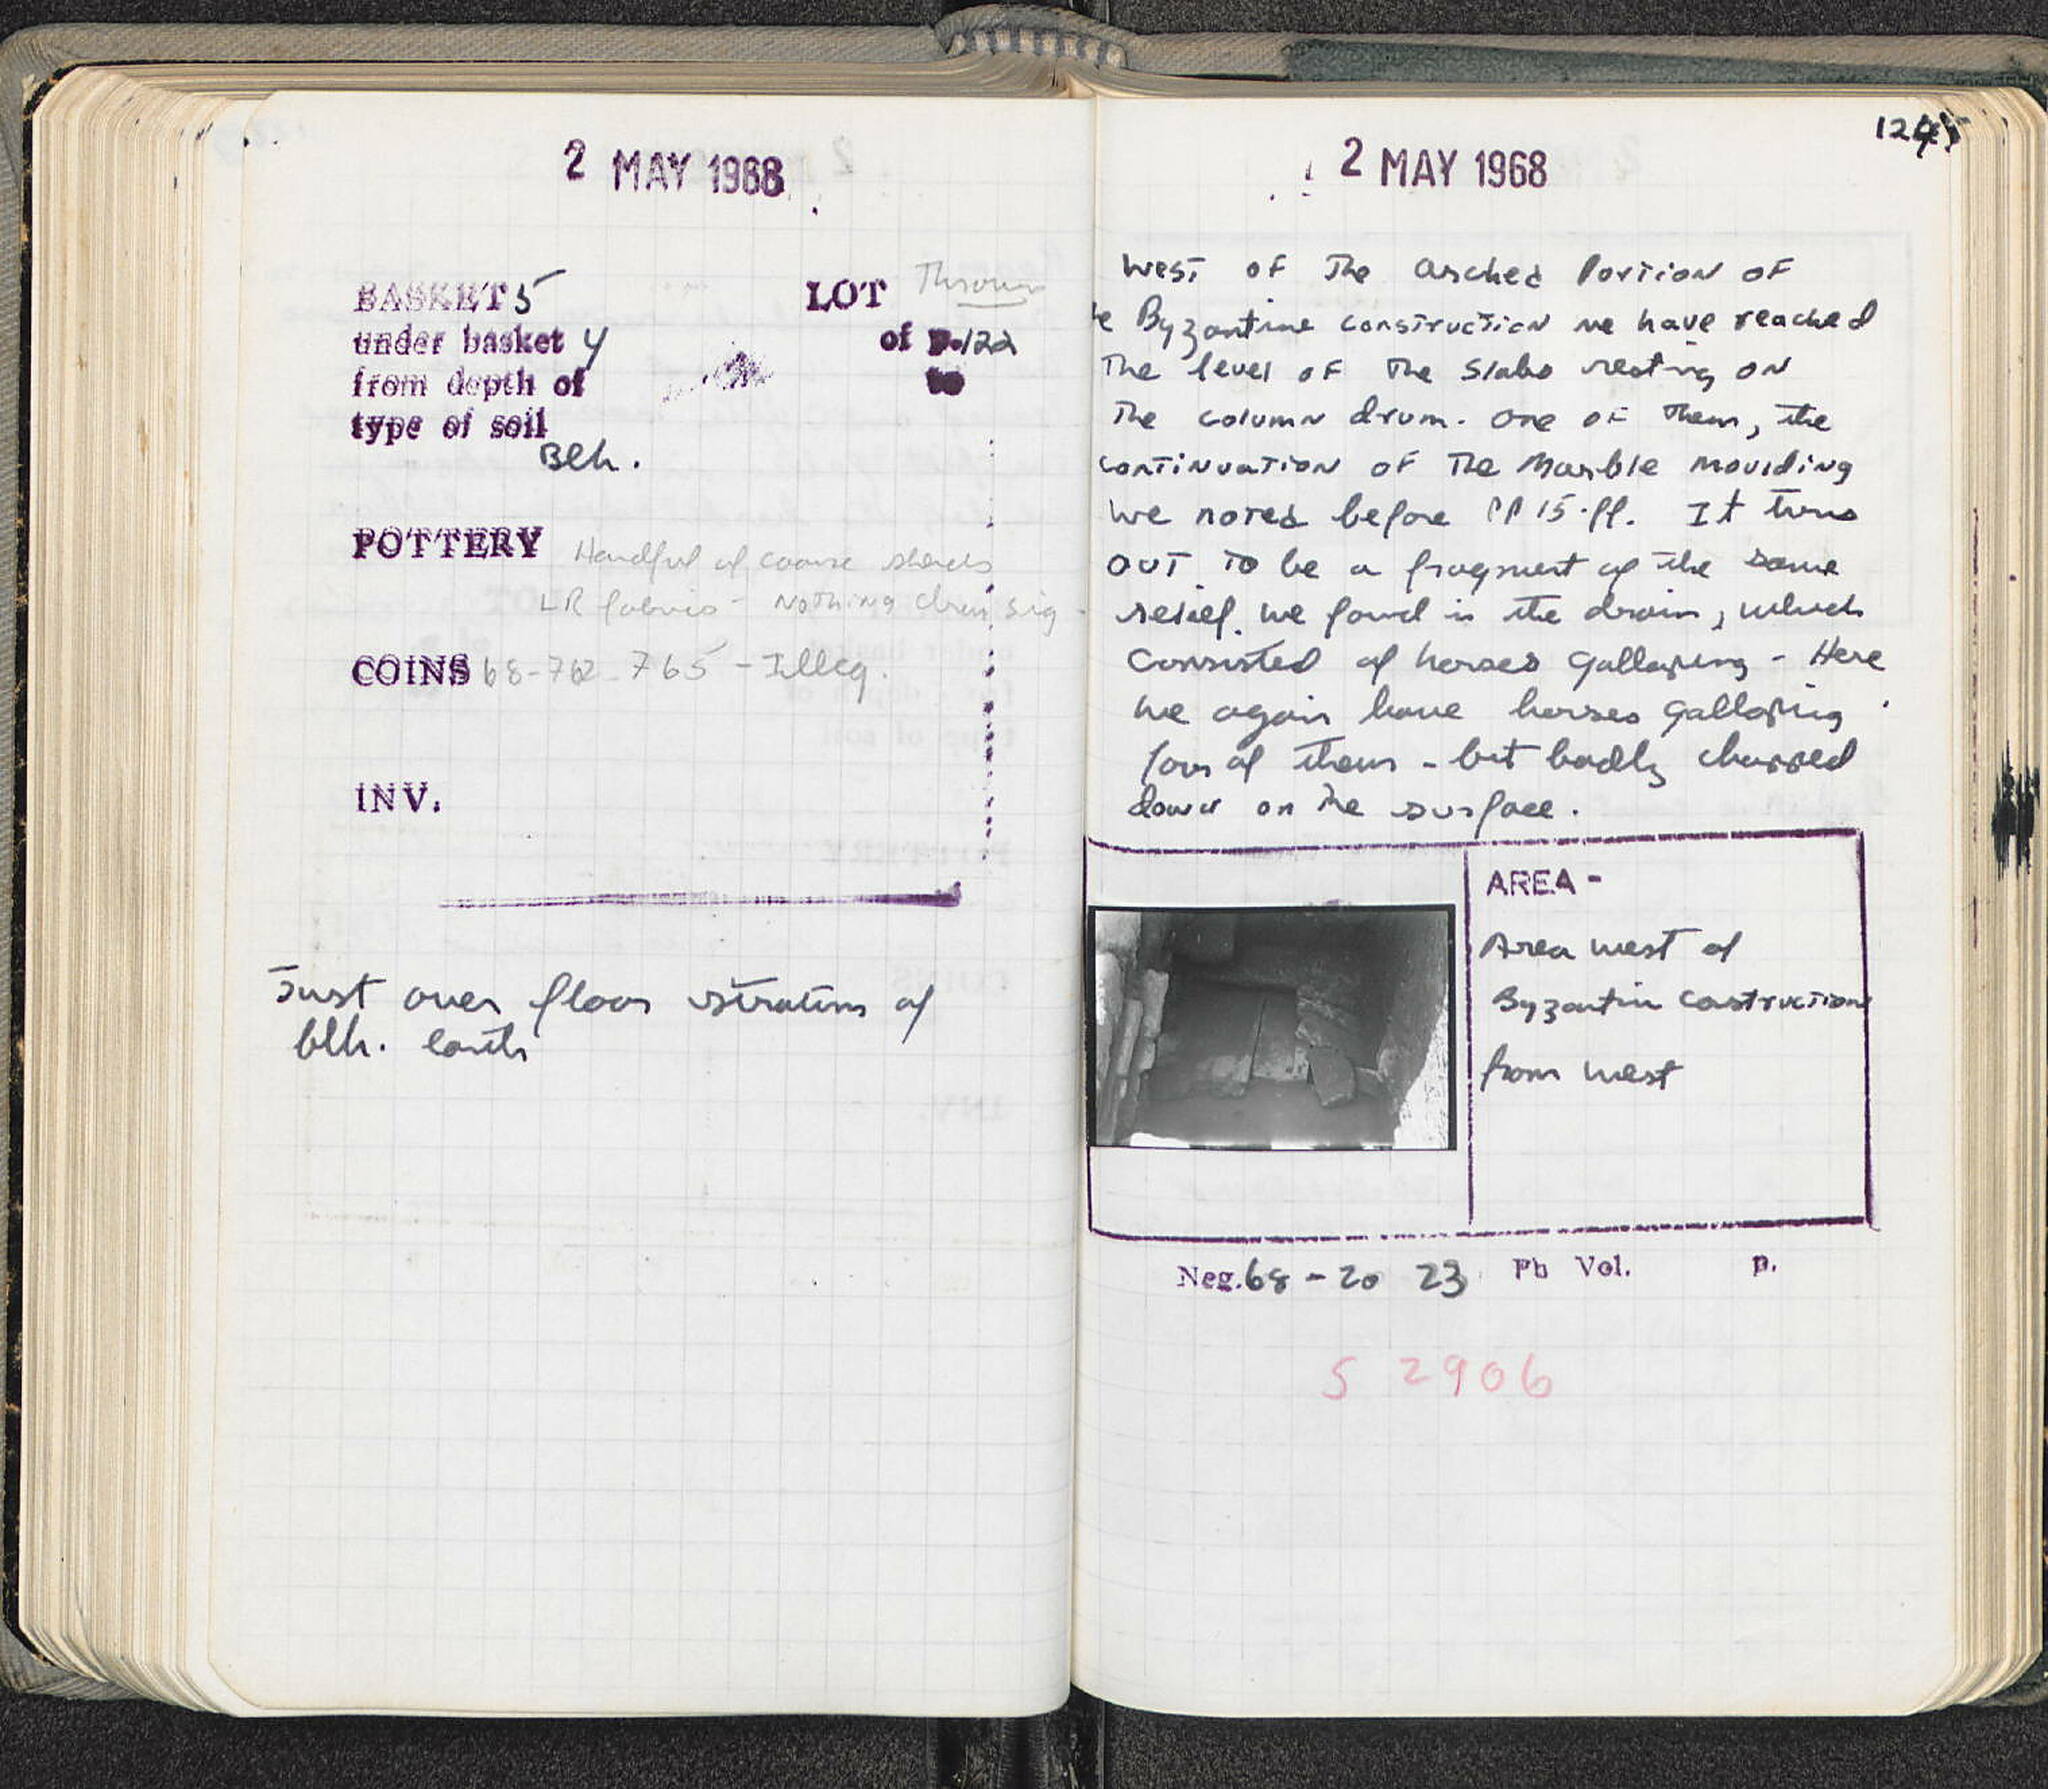 2 MAY 1968
BASKET 5
LOT Thrown
under basket 4
of p. 122
from depth of
to
type of soil
Blk.
POTTERY Handful of coarse sherds
LR fabric - Nothing chron sig -
COINS 68-762-765 - Illeg.
INV.
Just over floor stratum of
blk. earth
124
2 MAY 1968
West of The arched Portion of
Byzantine construction we have reached
The level of The Slabs resting on
The column drum. One of Them, the
continuation of The Marble moulding
we noted before PP 15 ff. It turns
out to be a fragment of the same
relief we found in the drain, which
consisted of horses galloping - Here
we again have horses galloping
four of them - but badly
down on the surface.
AREA -
Area west of
Byzantin Constructions
from west
Neg. 68-20 23 Pb Vol. p.
S 2906